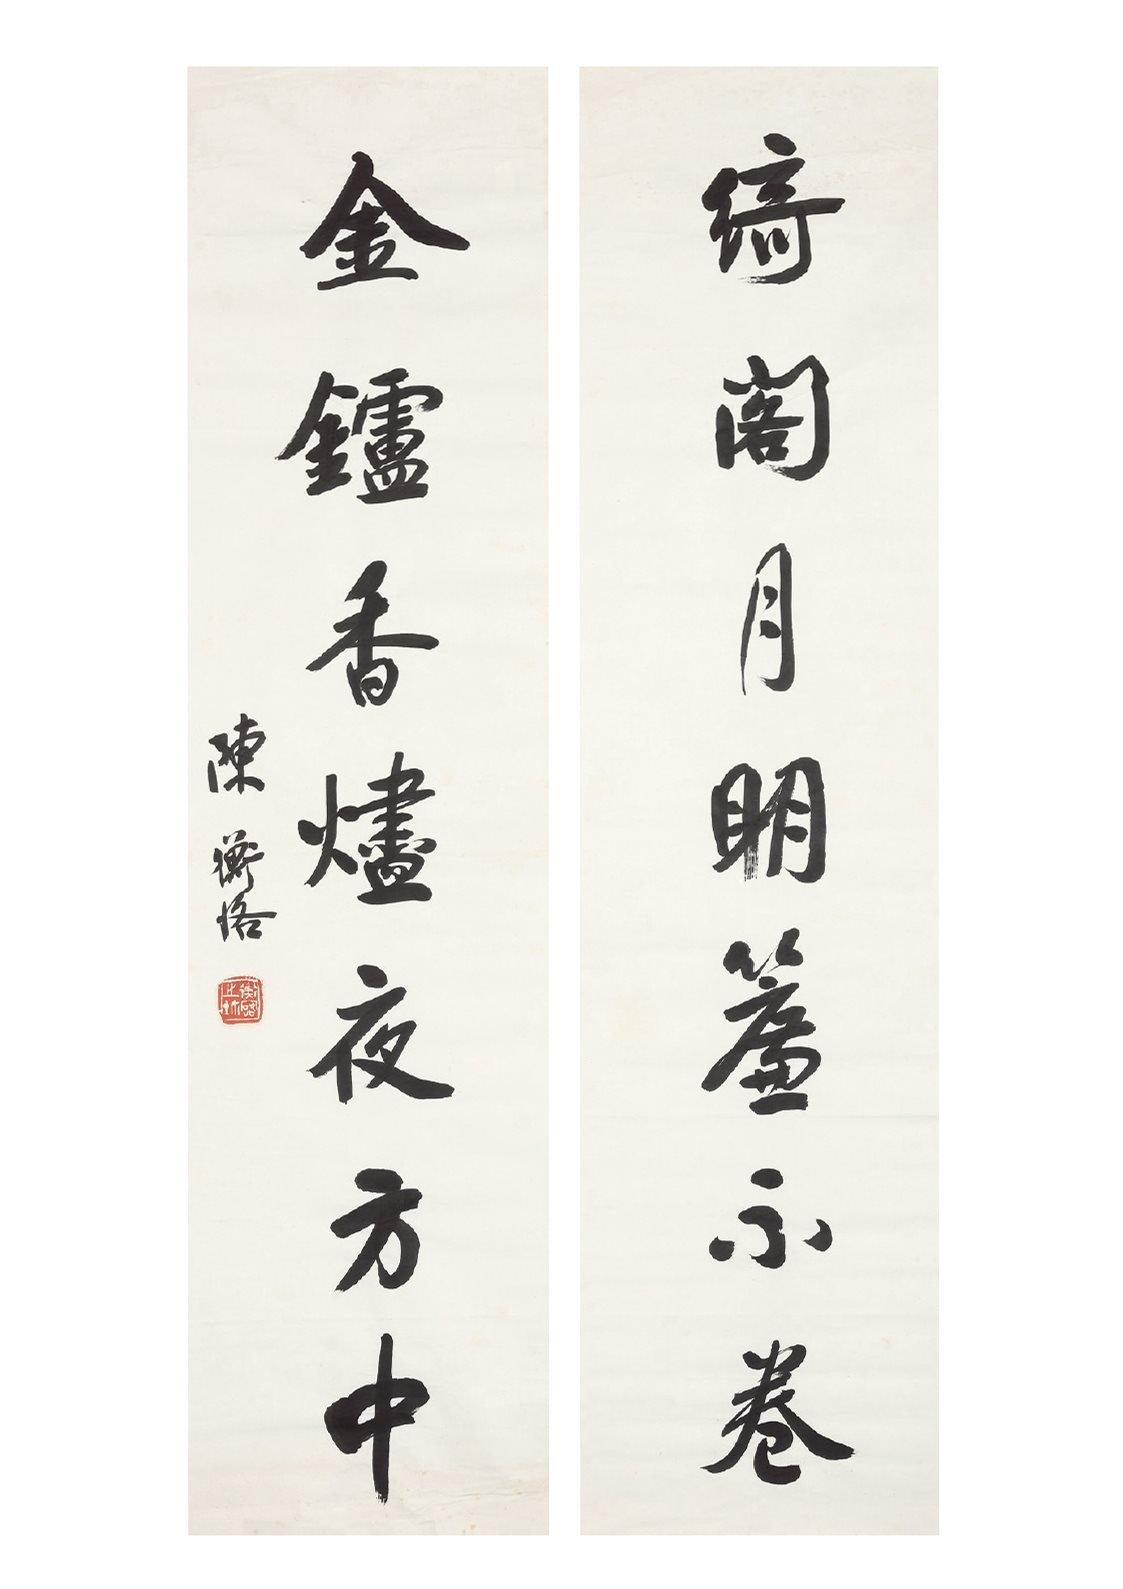 綺閣月明簾不卷
金鑪香燼夜方中
陳衡恪